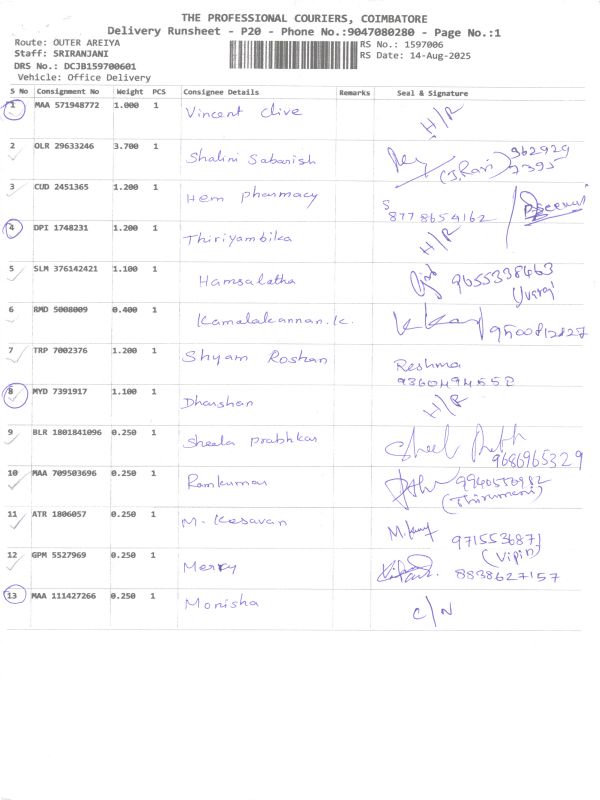 THE PROFESSIONAL COURIERS, COIMBATORE
Delivery Runsheet - P20 - Phone No.:9047080280 - Page No.:1
Route: OUTER AREIYA RS No.: 1597006
Staff: SRIRANJANI RS Date: 14-Aug-2025
DRS No.: DCJB159700601
Vehicle: Office Delivery
S No Consignment No Weight PCS Consignee Details Remarks Seal & Signature
1 MAA 571948772 1.000 1 Vincent Clive H/R
2 OLR 29633246 3.700 1 Shalini Sabarish (J.Ravi) 962929
7395
3 CUD 2451365 1.200 1 Hem pharmacy
8778654162
4 DPI 1748231 1.200 1 Thiriyambika H/R
5 SLM 376142421 1.100 1 Hamsalatha 9655338463
Uvaraj
6 RMD 5008009 0.400 1 Kamalakannan.K. 9500812827
7 TRP 7002376 1.200 1 Shyam Roshan Reshma
9360494558
8 MYD 7391917 1.100 1 Dharshan H/R
9 BLR 1801841096 0.250 1 Sheela prabhkar
9686965329
10 MAA 709503696 0.250 1 Ramkumar
11 ATR 1806057 0.250 1 M. Kesavan 9715536871
(Vipin)
12 GPM 5527969 0.250 1 Merry 8838627157
13 MAA 111427266 0.250 1 Monisha C/N